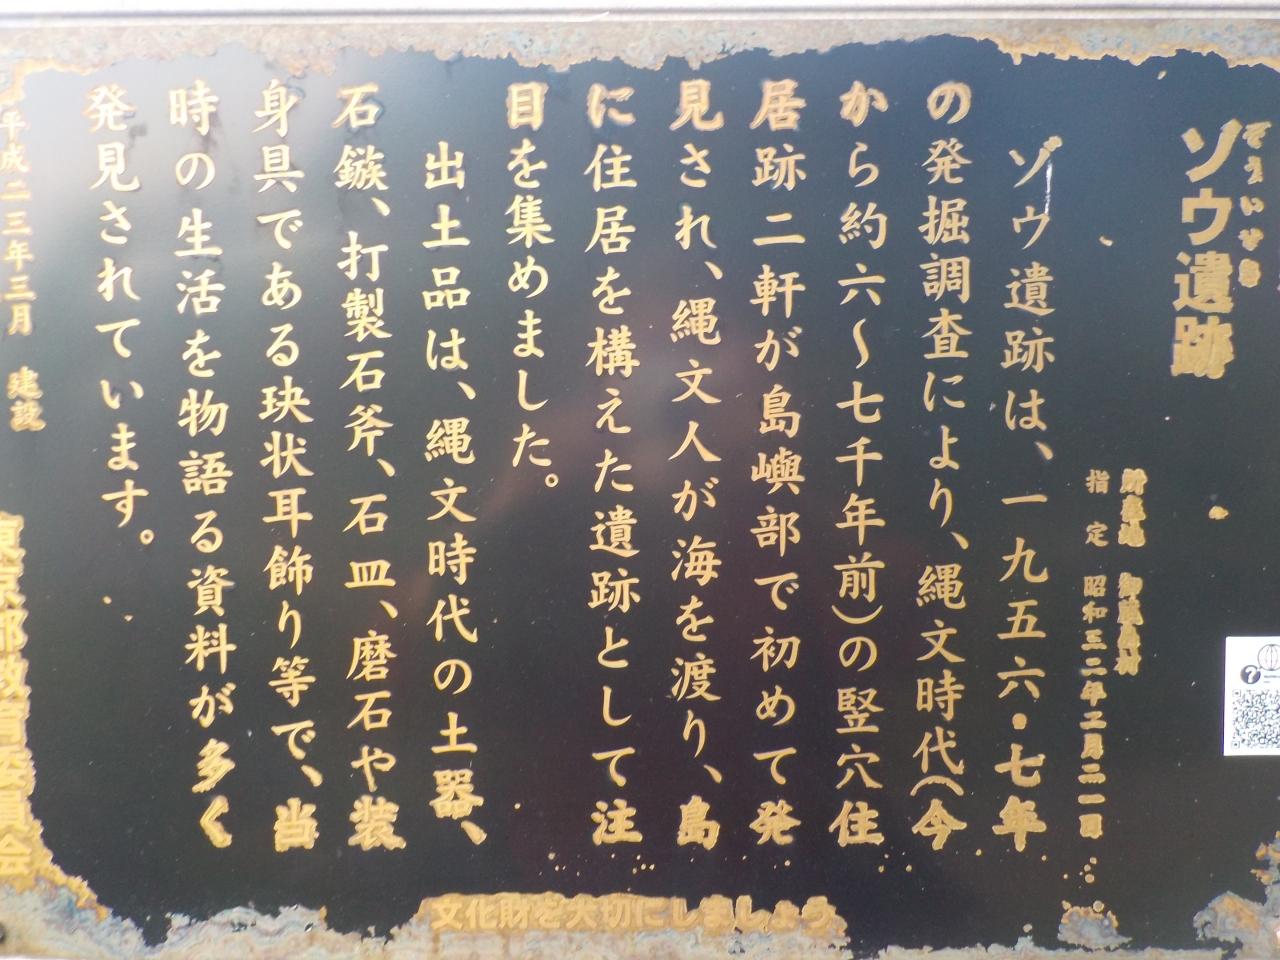 ぞういせき
ゾウ遺跡
所在地 御蔵島村
指定 昭和三二年二月二一日
ゾウ遺跡は、一九五六・七年
の発掘調査により、縄文時代(今
から約六〜七千年前)の竪穴住
居跡二軒が島嶼部で初めて発
見され、縄文人が海を渡り、島
に住居を構えた遺跡として注
目を集めました。
出土品は、縄文時代の土器、
石鏃、打製石斧、石皿、磨石や装
身具である玦状耳飾り等で、当
時の生活を物語る資料が多く
発見されています。
平成二三年三月 建設
東京都教育委員会
文化財を大切にしましょう